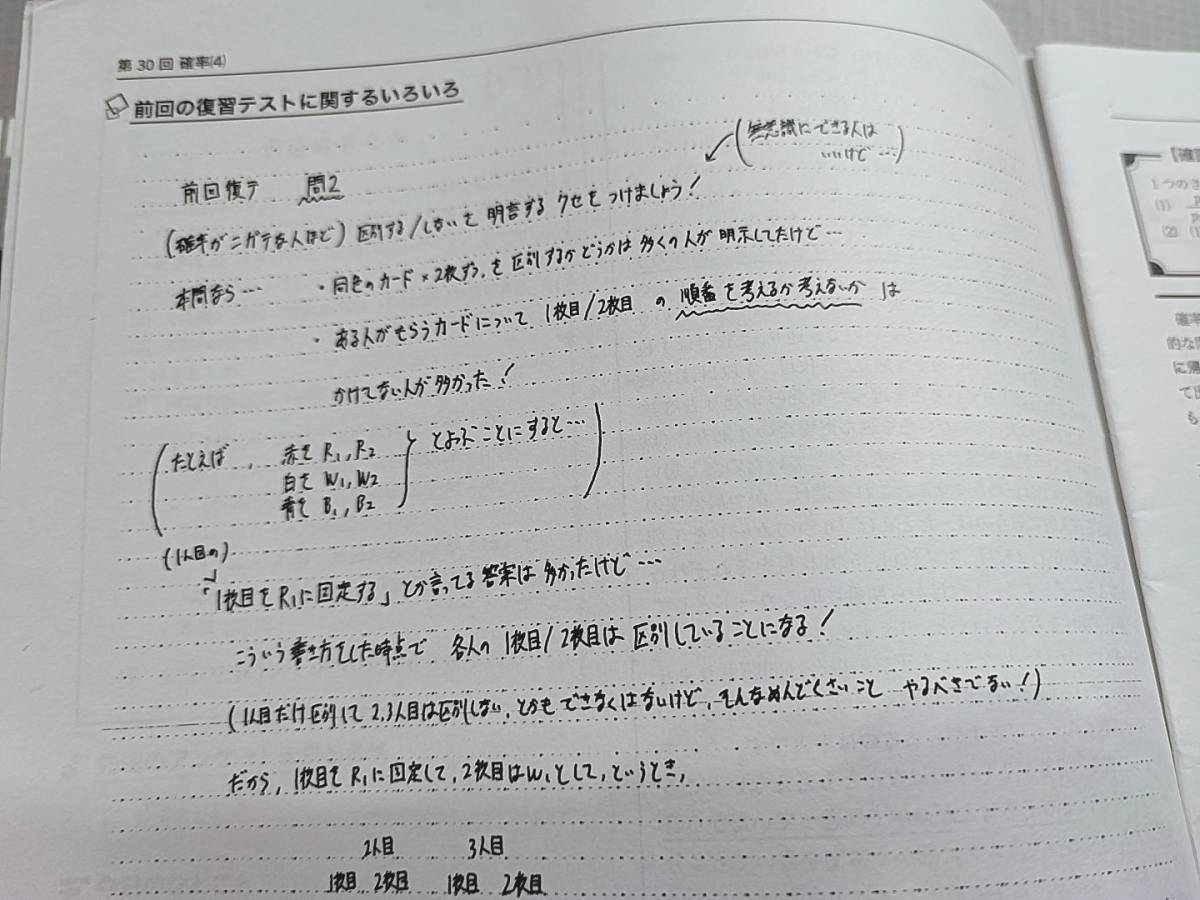 第 30 回 確率(4)
前回の復習テストに関するいろいろ
(無意識にできる人は
いいけど…)
前回復テ 問2
(確率がニガテな人ほど) 区別する/しないを 明言する クセを つけましょう!
本問なら… ・同色のカード×2枚ずつ, を 区別するかどうかは 多くの人が 明示してたけど…
・ある人がもらうカードについて 1枚目/2枚目 の 順番を考えるか考えないか は
かけてない人が多かった!
(たとえば, 赤を R1, R2
白を W1, W2
青を B1, B2
とよぶことにすると…)
(1人目の)
「1枚目を R1に固定する」とか言ってる答案は 多かったけど…
こういう書き方をした時点で 各人の 1枚目/2枚目は 区別していることになる!
(1人目だけ区別して 2,3人目は区別しない, とかも できなくはないけど, そんなめんどくさいこと やるべきでない!)
だから, 1枚目を R1に固定して, 2枚目はW1として, というとき,
2人目 3人目
1枚目 2枚目 1枚目 2枚目
【確
1つのさ
(1)
(2) (1)
確率
的な
に帰
て出
も